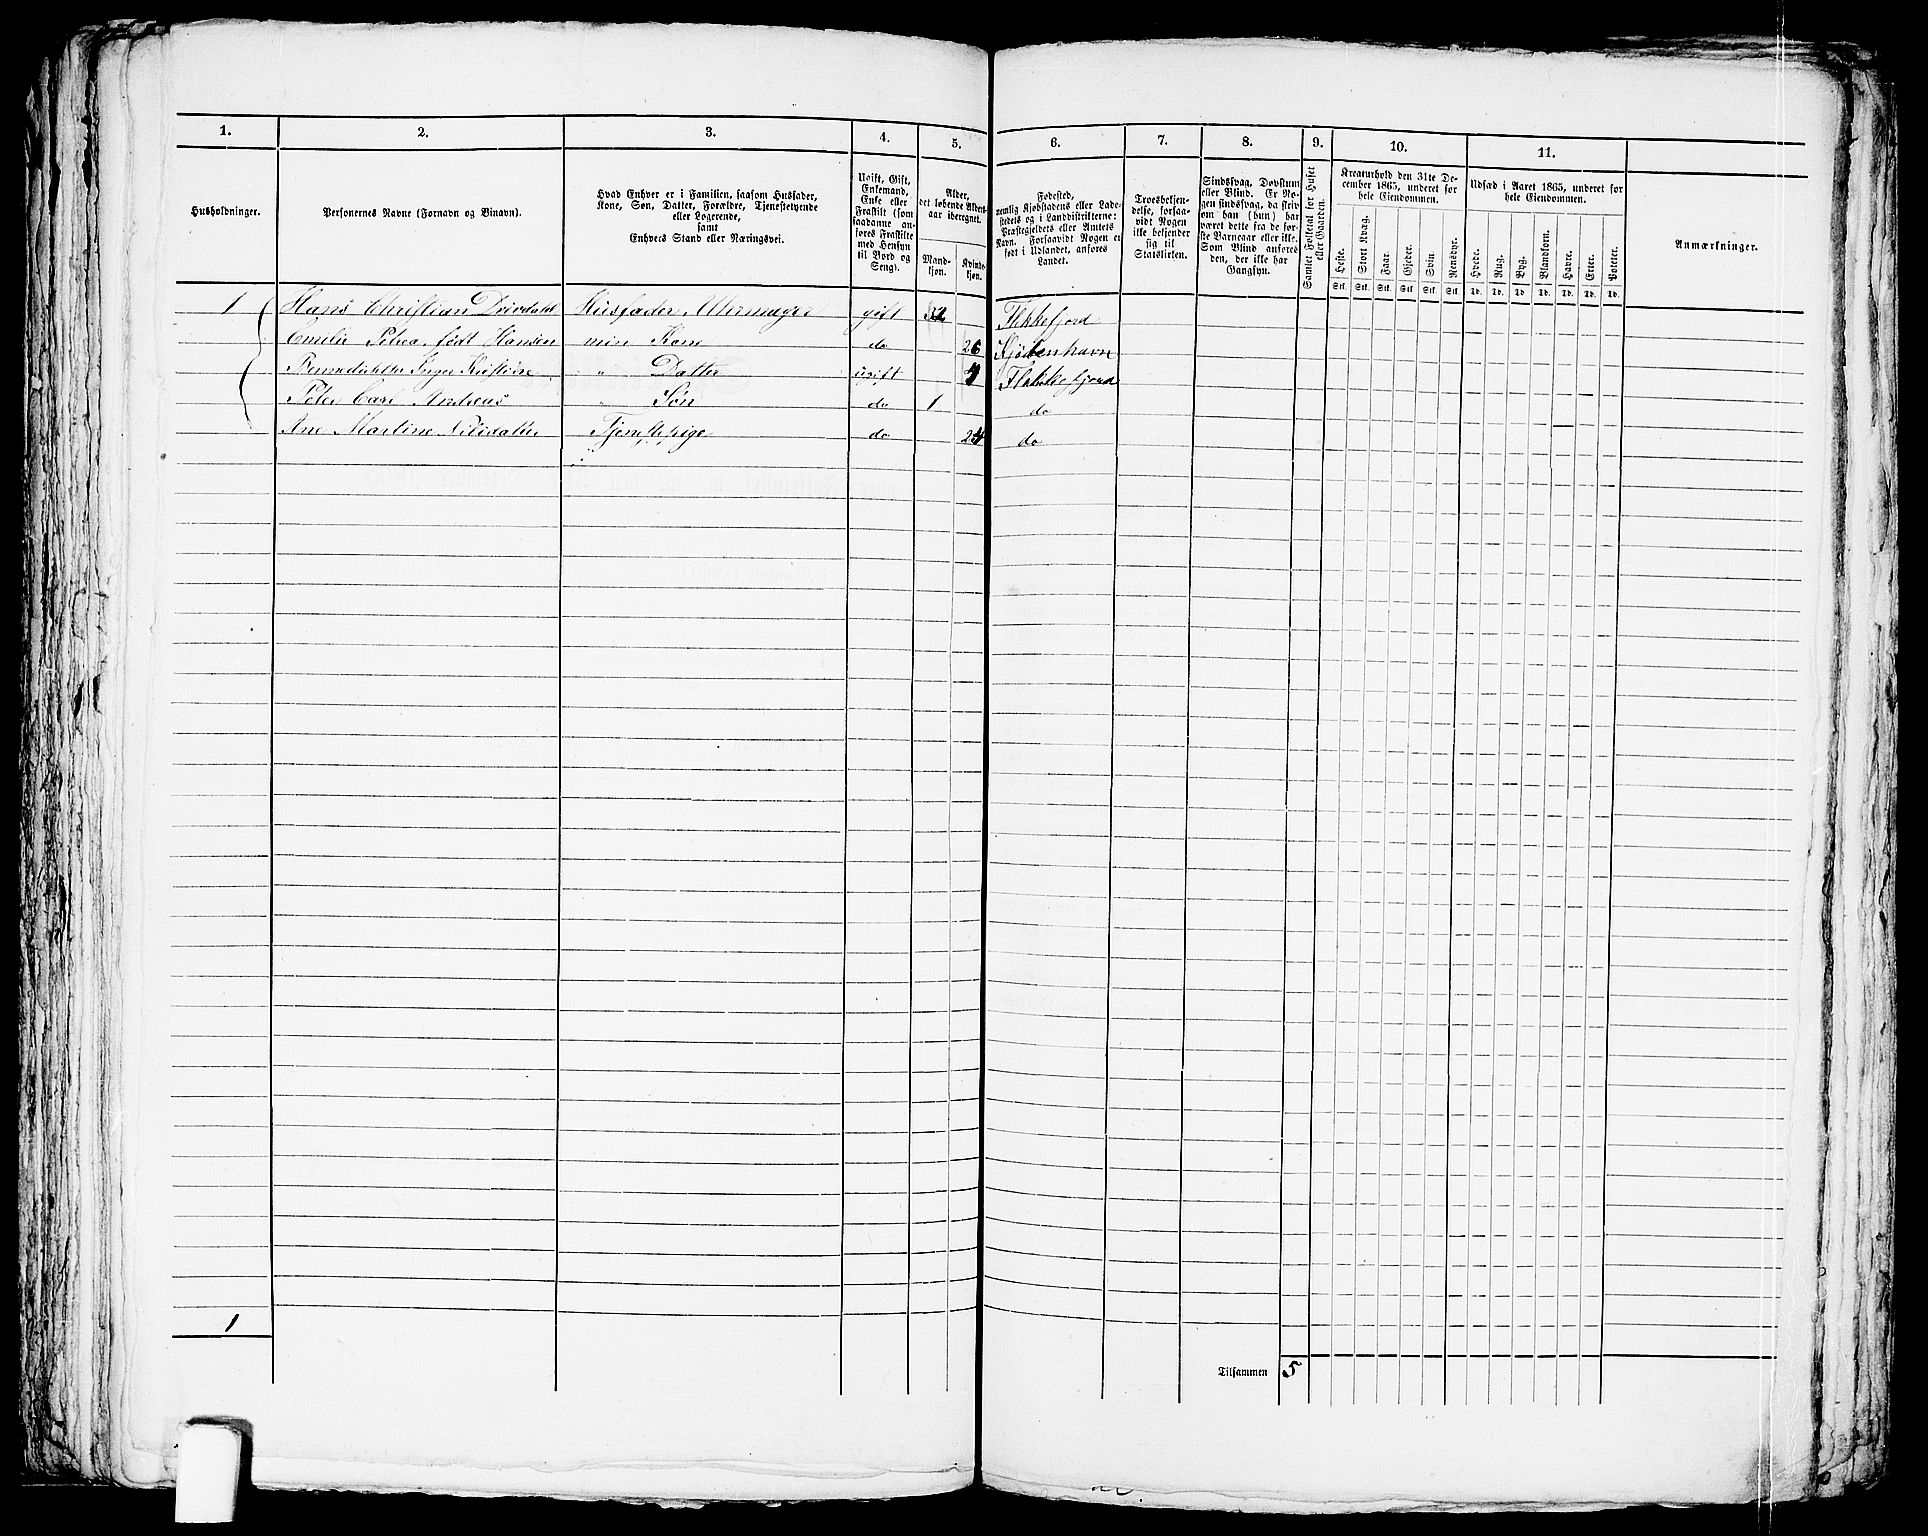 1. 2. 3. 4. 5. 6. 7. 8. 9. 10. 11.
Husholdninger.
Personernes Navne (Fornavn og Tilnavn).
Hvad Enhver er i Familien, saasom Husfader,
Kone, Søn, Datter, Forældre, Tjenestetyende
eller Logerende,
samt
Enhvers Stand eller Næringsvei.
Ugift, Gift,
Enkemand,
Enke eller
Fraskilt (som
saadanne an-
føres Fraskilte
med Hensyn
til Bord og
Seng).
Alder,
det løbende Alders-
aar iberegnet.
Mand-
kjøn.
Kvinde-
kjøn.
Fødested,
nemlig Kjøbstadens eller Lade-
stedets og i Landdistrikterne:
Præstegjeldets eller Amtets
Navn. Forsaavidt Nogen er
født i Udlandet, anføres
Landet.
Troesbekjen-
delse, forsaa-
vidt Nogen
ikke bekjender
sig til
Statskirken.
Sindssvag, Døvstum
eller Blind. Er No-
gen sindssvag, da skriv
om han (hun) har
været dette fra de før-
ste Barneaar eller ikke.
Som Blind anføres
den, der ikke har
Gangsyn.
Samlet Folketal for Huset
eller Gaarden.
Kreaturhold den 31te De-
cember 1865, underet for
hele Eiendommen.
Heste. Stort Kvæg. Faar. Gjeder. Svin. Rensdyr.
Stk. Stk. Stk. Stk. Stk. Stk.
Udsæd i Aaret 1865, underet for
hele Eiendommen.
Hvede. Rug. Byg. Blandkorn. Havre. Erter. Poteter.
Td. Td. Td. Td. Td. Td. Td.
Anmærkninger.
1 Hans Christian Husfader gift Flekkefjord
Emilie Petrea født Hansen min Kone do 26 Kjøbenhavn
Inger Kristine " Datter ugift Flekkefjord
Peter Carl Andreas " Søn do 1 do
Ane Martine Tjenestepige do do
1
Tilsammen 5